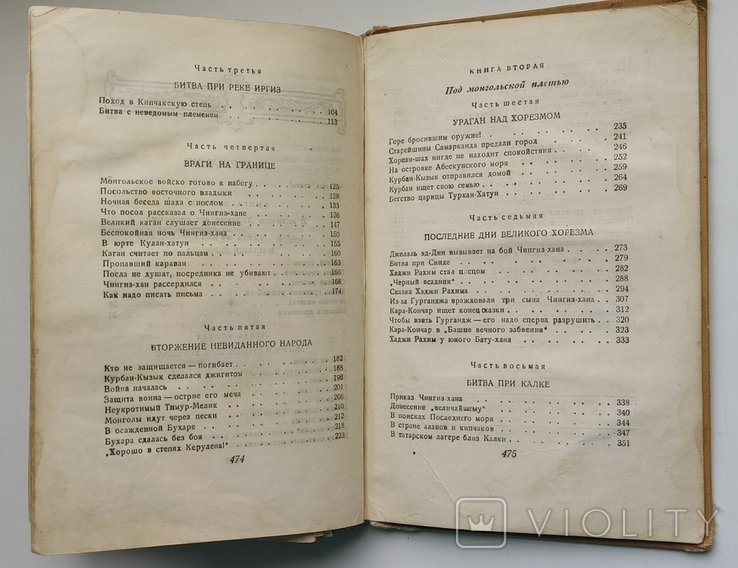 Часть третья
БИТВА ПРИ РЕКЕ ИРГИЗ
Поход в Кипчакскую степь . . . . . . . . 104
Битва с неведомым племенем . . . . . . . 113
Часть четвертая
ВРАГИ НА ГРАНИЦЕ
Монгольское войско готово к набегу . . . . . 125
Посольство восточного владыки . . . . . . 128
Ночная беседа шаха с послом . . . . . . . 133
Что посол рассказал о Чингиз-хане . . . . . 136
Великий каган слушает донесение . . . . . 147
Беспокойная ночь Чингиз-хана . . . . . . 150
В юрте Кулан-хатун . . . . . . . . 155
Каган считает по пальцам . . . . . . . 160
Пропавший караван . . . . . . . . 163
Посла не душат, посредника не убивают . . . 166
Чингиз-хан рассердился . . . . . . . . 168
Как надо писать письма . . . . . . . . 174
Часть пятая
ВТОРЖЕНИЕ НЕВИДАННОГО НАРОДА
Кто не защищается — погибает . . . . . . 182
Курбан-Кызык сделался джигитом . . . . . 183
Война началась . . . . . . . . . 196
Защита воина — острие его меча . . . . . 201
Неукротимый Тимур-Мелик . . . . . . . 206
Монголы идут через пески . . . . . . . 210
В осажденной Бухаре . . . . . . . . 212
Бухара сдалась без боя . . . . . . . . 218
„Хорошо в степях Керулена!“ . . . . . . 223
474
КНИГА ВТОРАЯ
Под монгольской плетью
Часть шестая
УРАГАН НАД ХОРЕЗМОМ
Горе бросившим оружие! . . . . . . . 235
Старейшины Самарканда предали город . . . . 241
Хорезм-шах нигде не находит спокойствия . . . 246
На острове Абескунского моря . . . . . . 252
Курбан-Кызык отправился домой . . . . . 259
Курбан ищет свою семью . . . . . . . 264
Бегство царицы Туркан-Хатун . . . . . . 269
Часть седьмая
ПОСЛЕДНИЕ ДНИ ВЕЛИКОГО ХОРЕЗМА
Джелаль эд-Дин вызывает на бой Чингиз-хана . . . 273
Битва при Синде . . . . . . . . . 279
Хаджи Рахим стал писцом . . . . . . . 282
„Черный всадник“ . . . . . . . . . 288
Сказка Хаджи Рахима . . . . . . . . 294
Из-за Гурганджа враждовали три сына Чингиз-хана . . 307
Кара-Кончар ищет конец сказки . . . . . 312
Чтобы взять Гургандж — его надо сперва разрушить . . 320
Кара-Кончар в „Башне вечного забвения“ . . . 323
Хаджи Рахим у юного Бату-хана . . . . . 333
Часть восьмая
БИТВА ПРИ КАЛКЕ
Приказ Чингиз-хана . . . . . . . . 338
Донесение „величайшему“ . . . . . . . 340
В поисках Последнего моря . . . . . . . 344
В стране аланов и кипчаков . . . . . . . 347
В татарском лагере близ Калки . . . . . . 351
475
VIOLITY